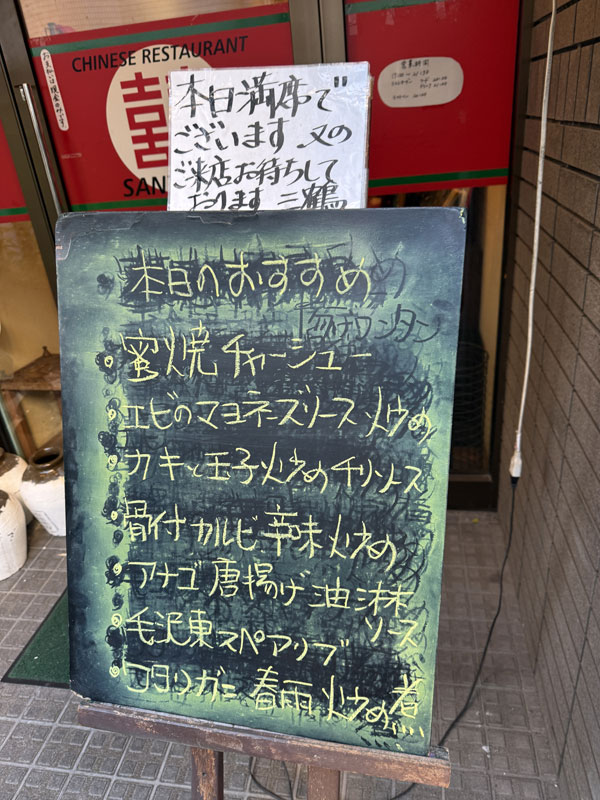 CHINESE RESTAURANT
囍
SAN
お支払いは現金のみです。
営業時間
本日満席で
ございます 又の
ご来店お待ちして
おります 三鶴
本日のおすすめ
蜜焼チャーシュー
エビのマヨネーズソース炒め
カキと玉子炒めチリソース
骨付カルビ辛味炒め
アナゴ唐揚げ油淋
ソース
毛沢東スペアリブ
ワタリガニ春雨炒め煮